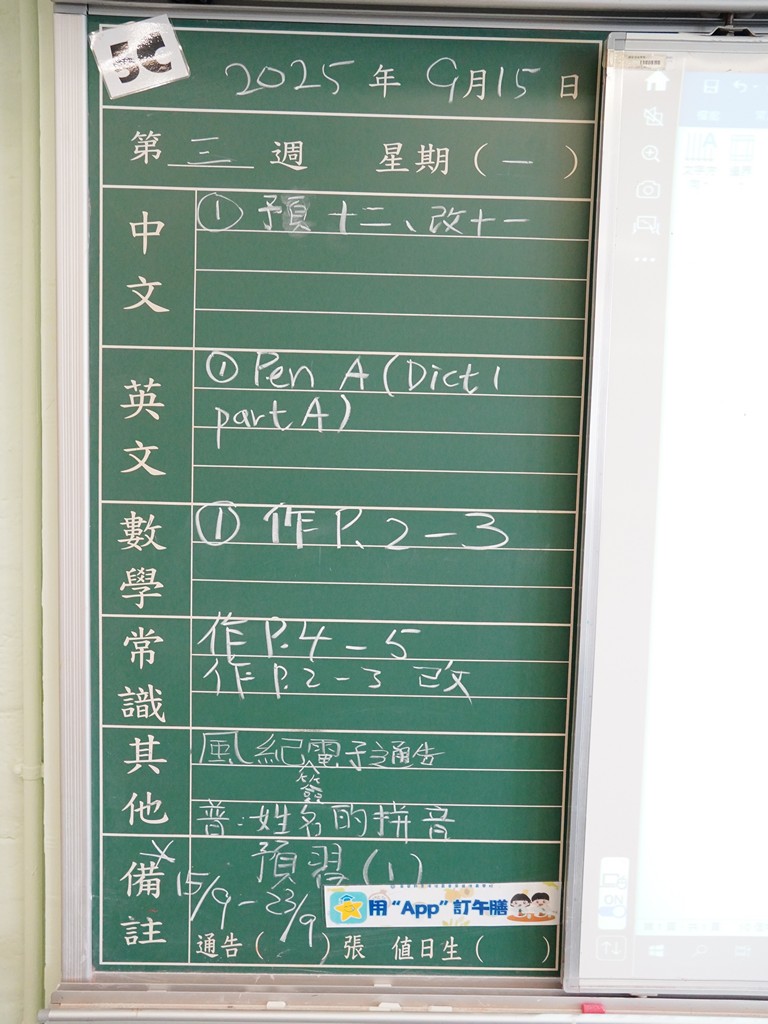 5C
2025 年 9月15 日
第 三 週 星期 ( 一 )
中文
① 預 十二、改十一
英文
① Pen A (Dict 1
part A)
數學
① 作 P. 2 - 3
常識
作 P. 4 - 5
作 P. 2 - 3 改
其他
風紀電子通告
簽
普：姓名的拼音
備註
預習 (1)
15/9 - 23/9
用 “App” 訂午膳
通告 ( ) 張 值日生 ( )
ON